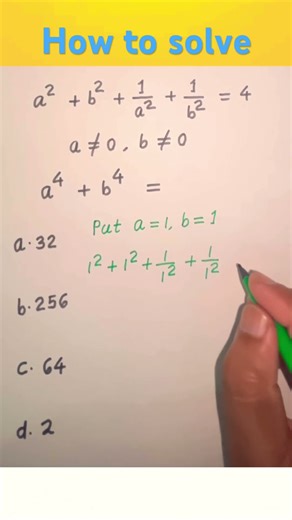 How to solve
a² + b² + 1/a² + 1/b² = 4
a ≠ 0, b ≠ 0
a⁴ + b⁴ =
Put a = 1, b = 1
a. 32
1² + 1² + 1/1² + 1/1²
b. 256
c. 64
d. 2